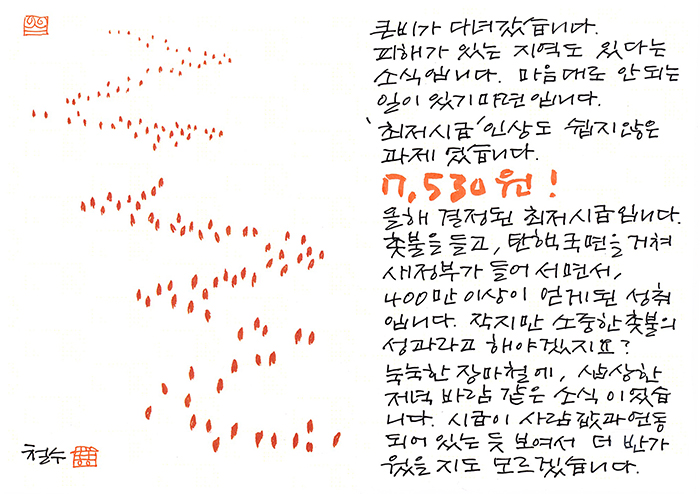 큰비가 다녀갔습니다.
피해가 있는 지역도 있다는
소식입니다. 마음대로 안되는
일이 있기마련입니다.
'최저시급'인상도 쉽지않은
과제였습니다.
7,530원!
올해 결정된 최저시급입니다.
촛불을 들고, 탄핵국면을 거쳐
새정부가 들어서면서,
400만이상이 얻게된 성취
입니다. 작지만 소중한촛불의
성과라고 해야겠지요?
눅눅한 장마철에, 삽상한
저녁 바람 같은 소식이었습
니다. 시급이 사람값과연동
되어 있는 듯 보여서 더 반가
웠을 지도 모르겠습니다.
철수